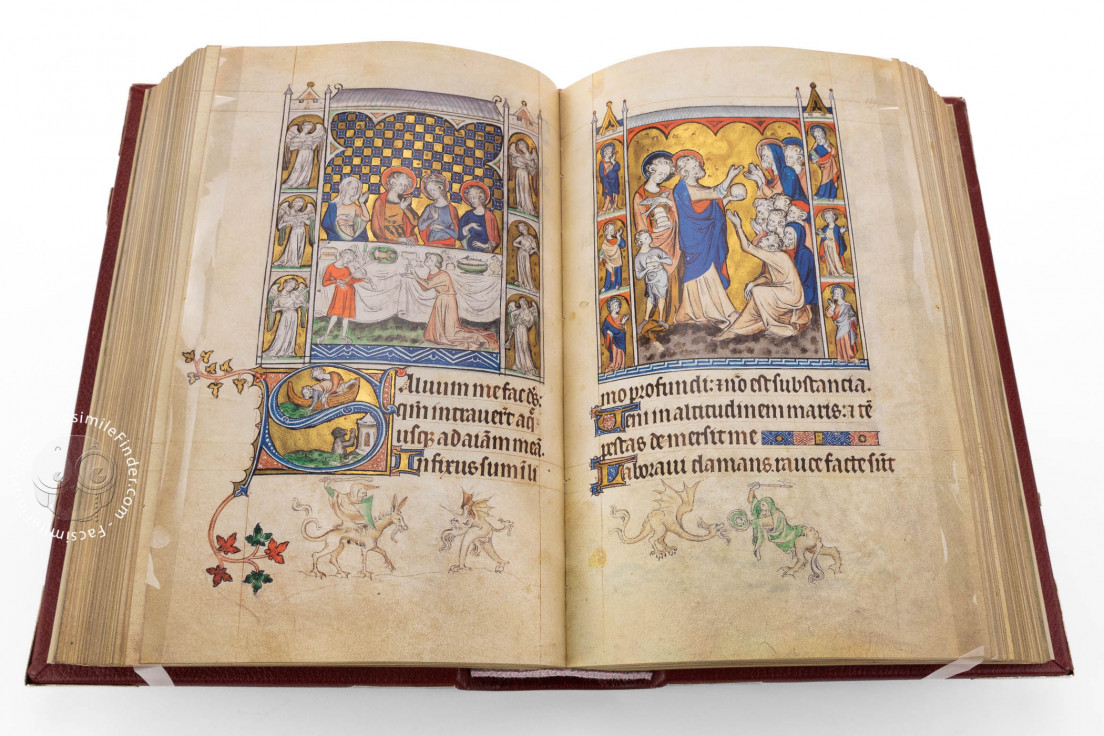 Saluum me fac ds:
qm intrauert aq̄
usq; ad aiam meā.
Infixus sum i li
mo profundi: ⁊ nō est substancia.
Ueni in altitudinem maris: ⁊ tē
pestas demersit me
Laboraui clamans. rauce facte sūt
FacsimileFinder.com